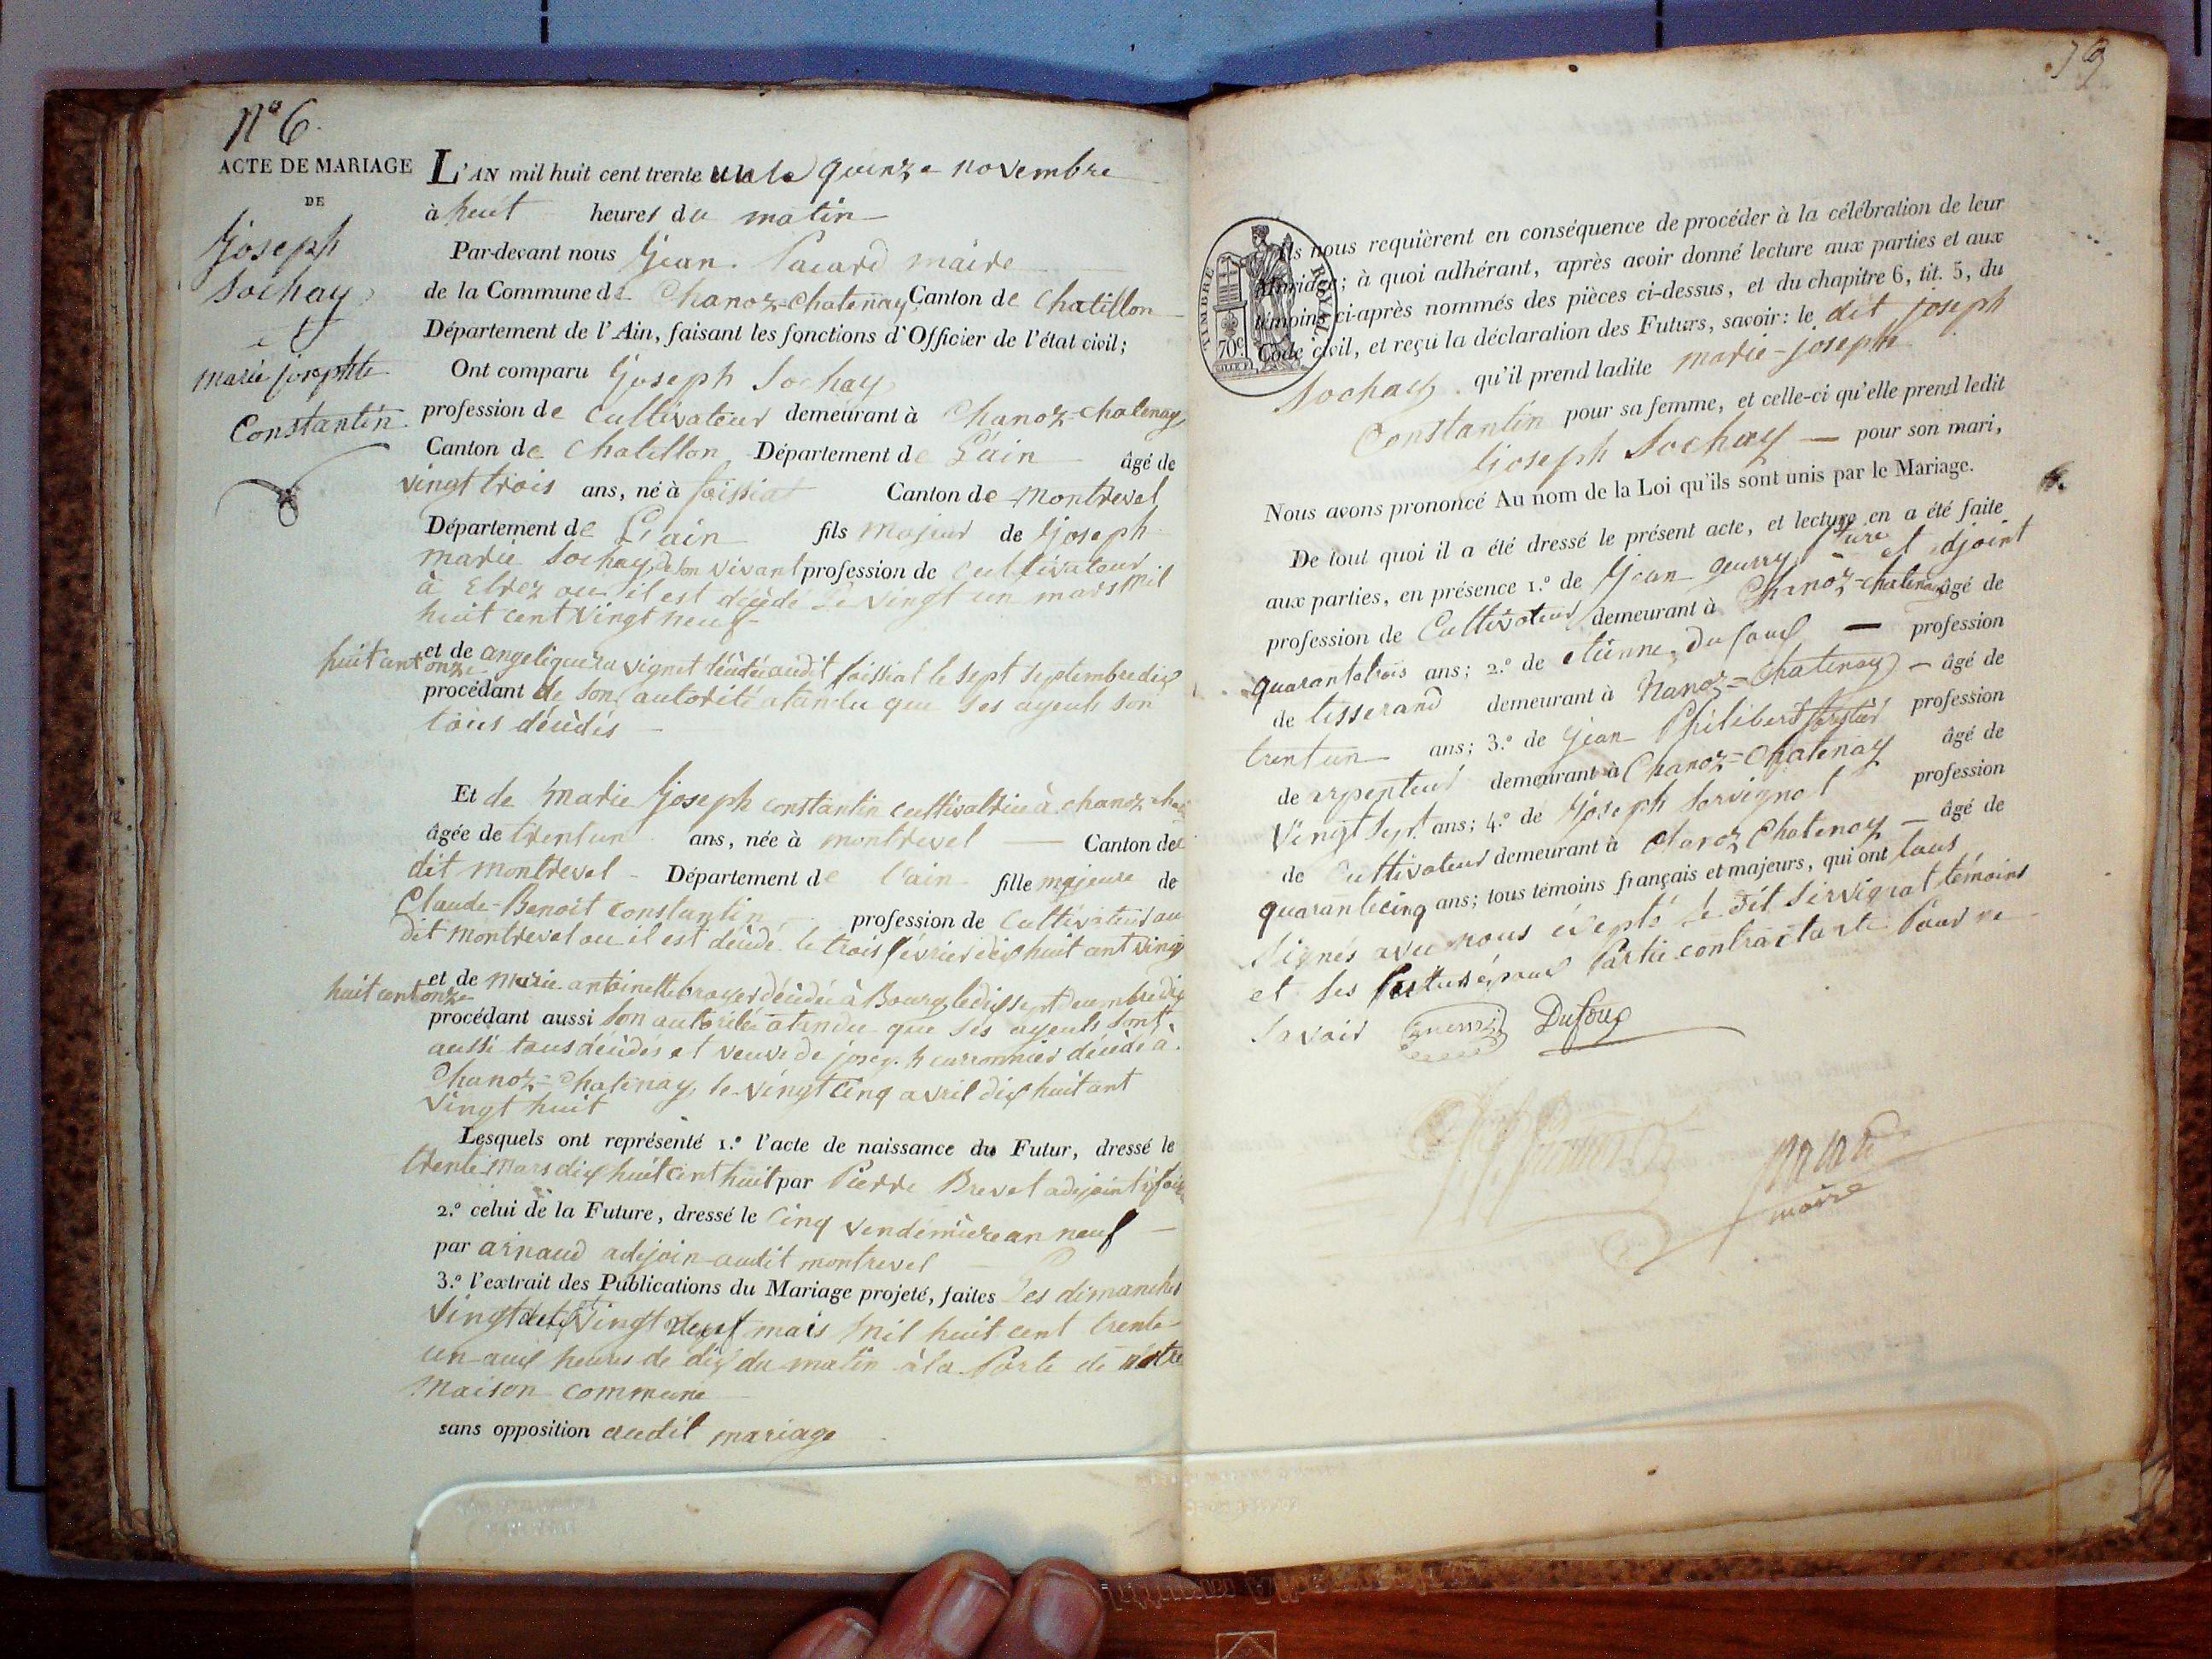 N° 6.
ACTE DE MARIAGE
DE
Joseph
Sochay
et
marie josephte
Constantin
L'AN mil huit cent trente un le quinze novembre
à huit heures du matin
Par-devant nous Jean Pacard maire
de la Commune de Chanoz=chatenay Canton de Chatillon
Département de l'Ain, faisant les fonctions d'Officier de l'état civil;
Ont comparu Joseph Sochay
profession de cultivateur demeurant à Chanoz-chatenay
Canton de Chatillon Département de L'ain âgé de
vingt trois ans, né à foissiat Canton de Montrevel
Département de L'ain fils majeur de Joseph
marie Sochay, de son vivant profession de cultivateur
à Etrez ou il est décédé Le vingt un mars mil
huit cent vingt neuf
et de angelique vignet décédée audit foissiat le sept septembre dix
huit cent onze
procédant de son autorité atandu que ses ayeuls son
tous décédés
Et de Marie Joseph constantin cultivatrice à chanoz
âgée de trent un ans, née à montrevel Canton de
dit montrevel Département de l'ain fille majeure de
Claude-Benoit constantin profession de cultivateur au
dit montrevel ou il est décédé le trois février dix huit cent vingt
et de Marie antoinette brayer décédée à Bourg le dix sept decembre dix
huit cent onze
procédant aussi son autorité atendu que ses ayeuls sont
aussi tous décédés et veuve de joseph curronnier décédé à
Chanoz=Chatenay, le vingt cinq avril dix huit cent
vingt huit
Lesquels ont représenté 1.° l'acte de naissance du Futur, dressé le
trente mars dix huit cent huit par Pierre Brevet adejoint
2.° celui de la Future, dressé le cinq vendémière an neuf
par arnaud adejoin audit montrevel
3.° l'extrait des Publications du Mariage projeté, faites Les dimanches
vingt deux vingt neuf mais mil huit cent trente
un aux heures de dix du matin à la Porte de notre
maison commune
sans opposition audit mariage
TIMBRE ROYAL
70c.
Ils nous requièrent en conséquence de procéder à la célébration de leur
Mariage; à quoi adhérant, après avoir donné lecture aux parties et aux
témoins ci-après nommés des pièces ci-dessus, et du chapitre 6, tit. 5, du
Code civil, et reçu la déclaration des Futurs, savoir: le dit joseph
Sochay qu'il prend ladite marie-joseph
Constantin pour sa femme, et celle-ci qu'elle prend ledit
Joseph Sochay — pour son mari,
Nous avons prononcé Au nom de la Loi qu'ils sont unis par le Mariage.
De tout quoi il a été dressé le présent acte, et lecture en a été faite
aux parties, en présence 1.° de Jean guerry et djoint
profession de Cultivateur demeurant à Chanoz=chatenay âgé de
quarante trois ans; 2.° de etienne Dufoux — profession
de tisserand demeurant à Hanoz=Chatenay — âgé de
trent un ans; 3.° de Jean Philibert profession
de arpenteur demeurant à Chanoz=Chatenay âgé de
Vingt sept ans; 4.° de Joseph Servignat profession
de Cultivateur demeurant à chanoz Chatenay — âgé de
quarante cinq ans; tous témoins français et majeurs, qui ont tous
signés avec nous écepté le dit Servignat témoins
et les futurs époux Partie contractante Pour ne
Savoir Dufoux
maire